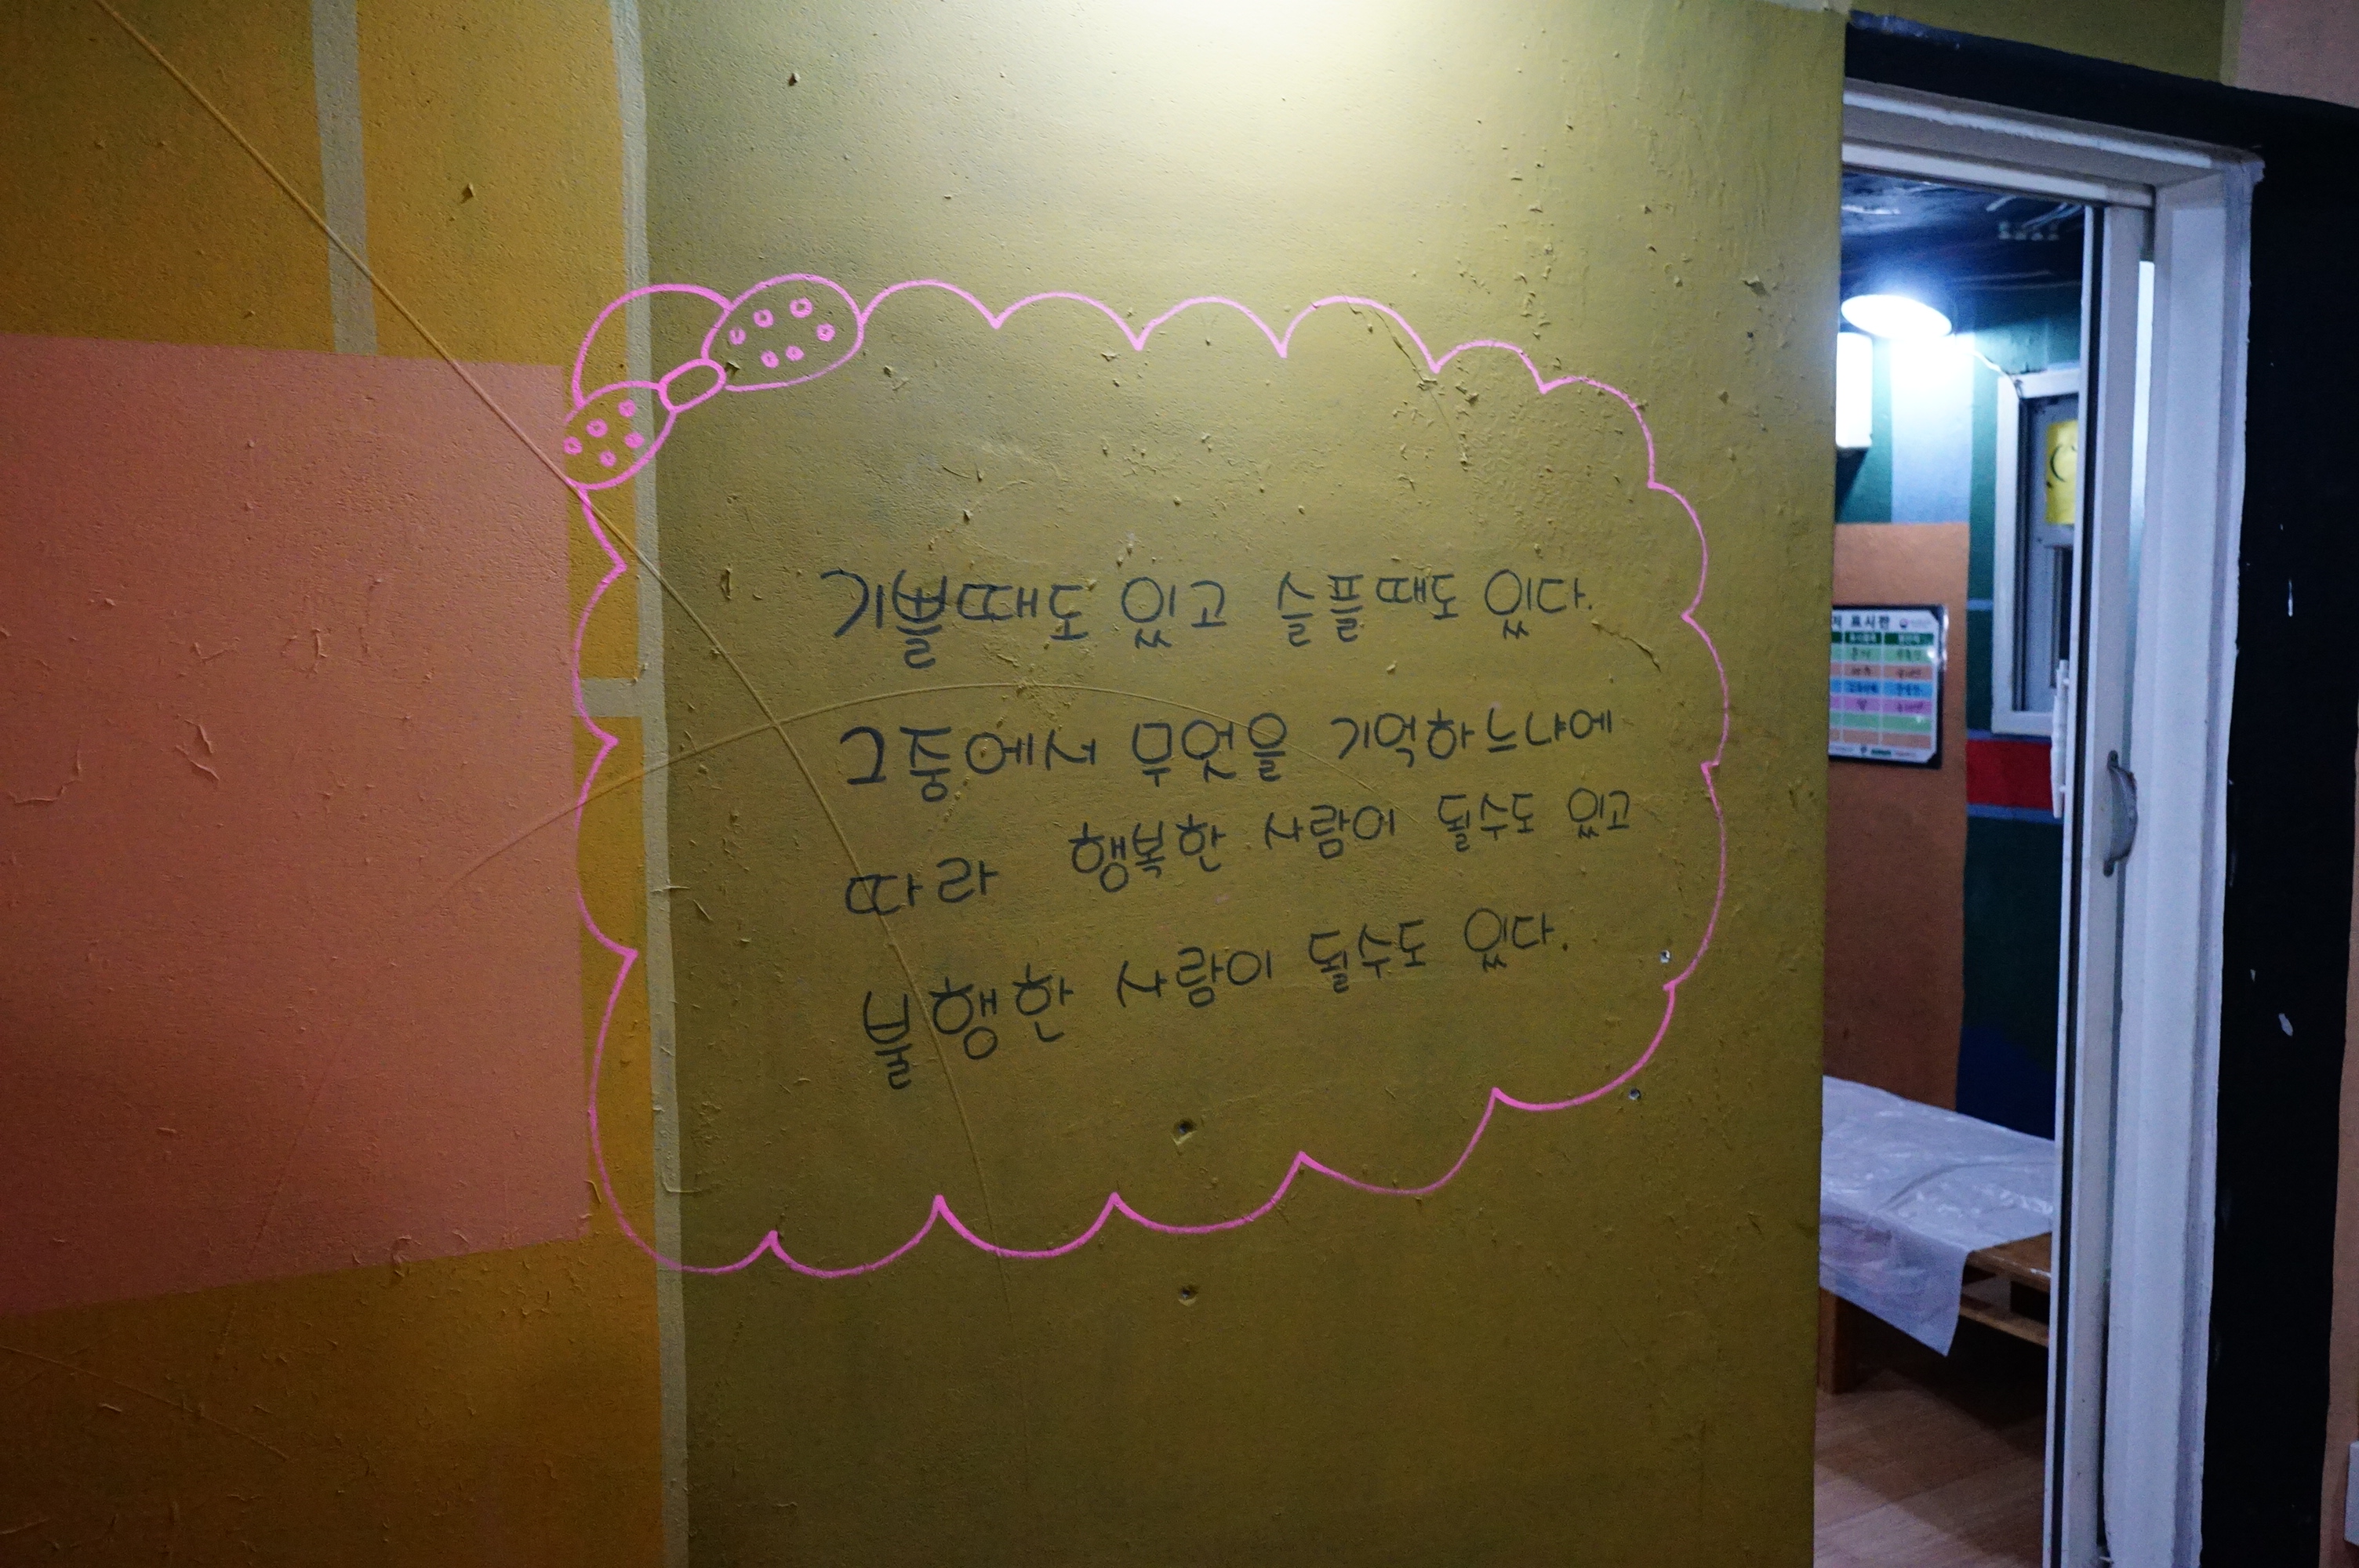 기쁠때도 있고 슬플때도 있다.
그중에서 무엇을 기억하느냐에
따라 행복한 사람이 될수도 있고
불행한 사람이 될수도 있다.
표시판